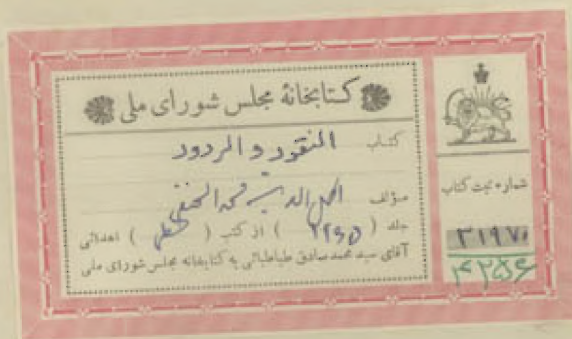 کتابخانهٔ مجلس شورای ملی
کتاب النقود و الردود
مؤلف اکمل الدین محمد الحنفی
جلد ( ۲۲۶۵ ) از کتب ( خطی ) اهدائی
آقای سید محمد صادق طباطبائی به کتابخانه مجلس شورای ملی
شماره ثبت کتاب
۳۱۹۷۰
۴۲۵۶